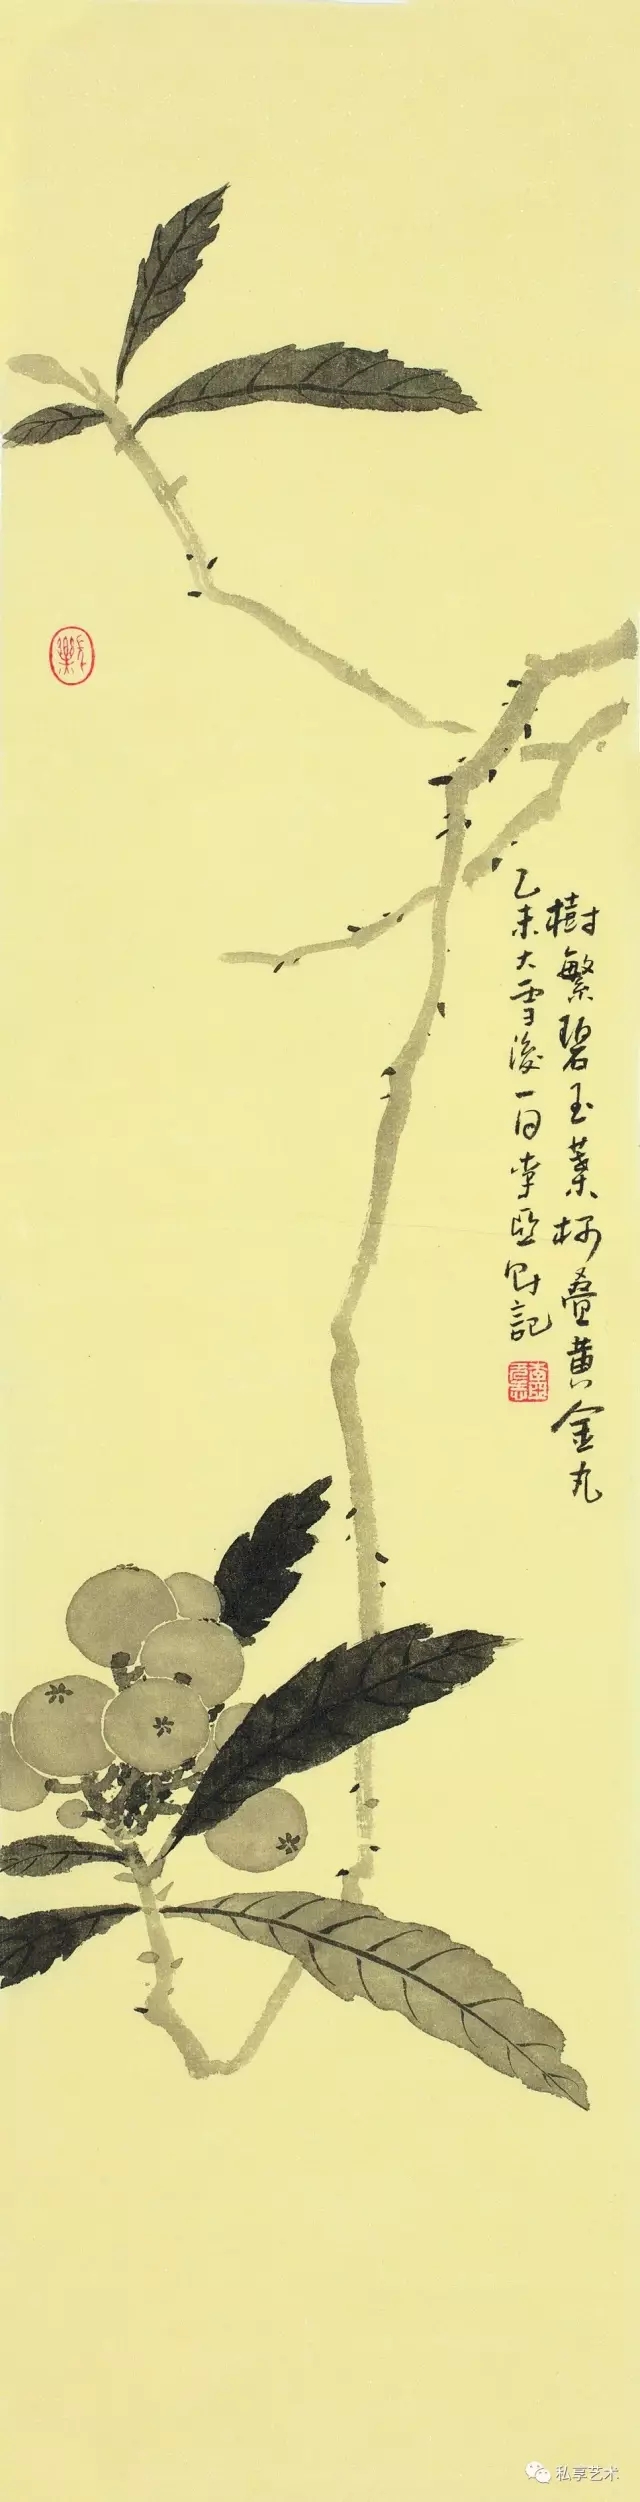 樹繁碧玉葉柯叠黄金丸
乙未大雪後一日李亞記
私享艺术